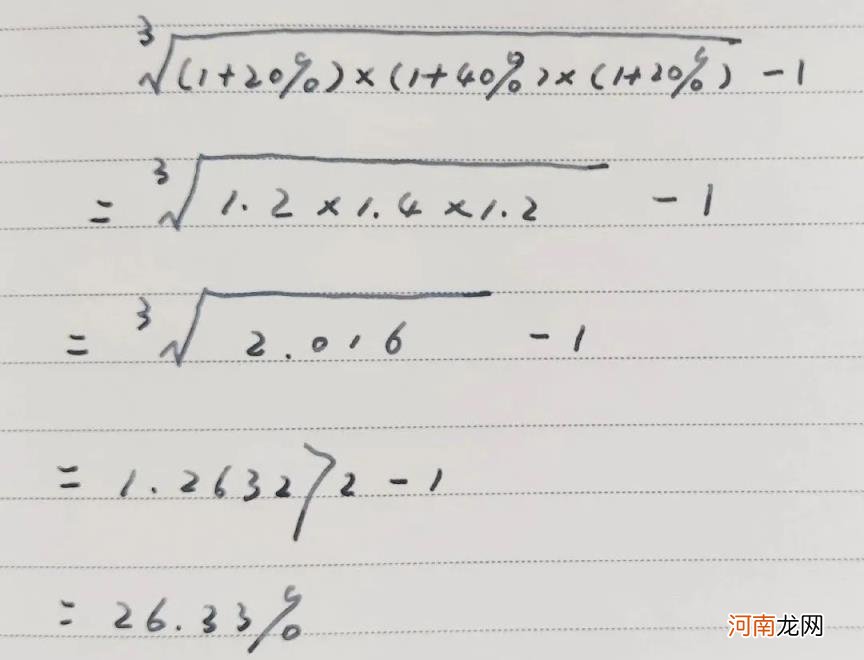 ³√(1+20%)×(1+40%)×(1+20%) -1
= ³√1.2×1.4×1.2 -1
= ³√2.016 -1
= 1.263272-1
= 26.33%
河南龙网